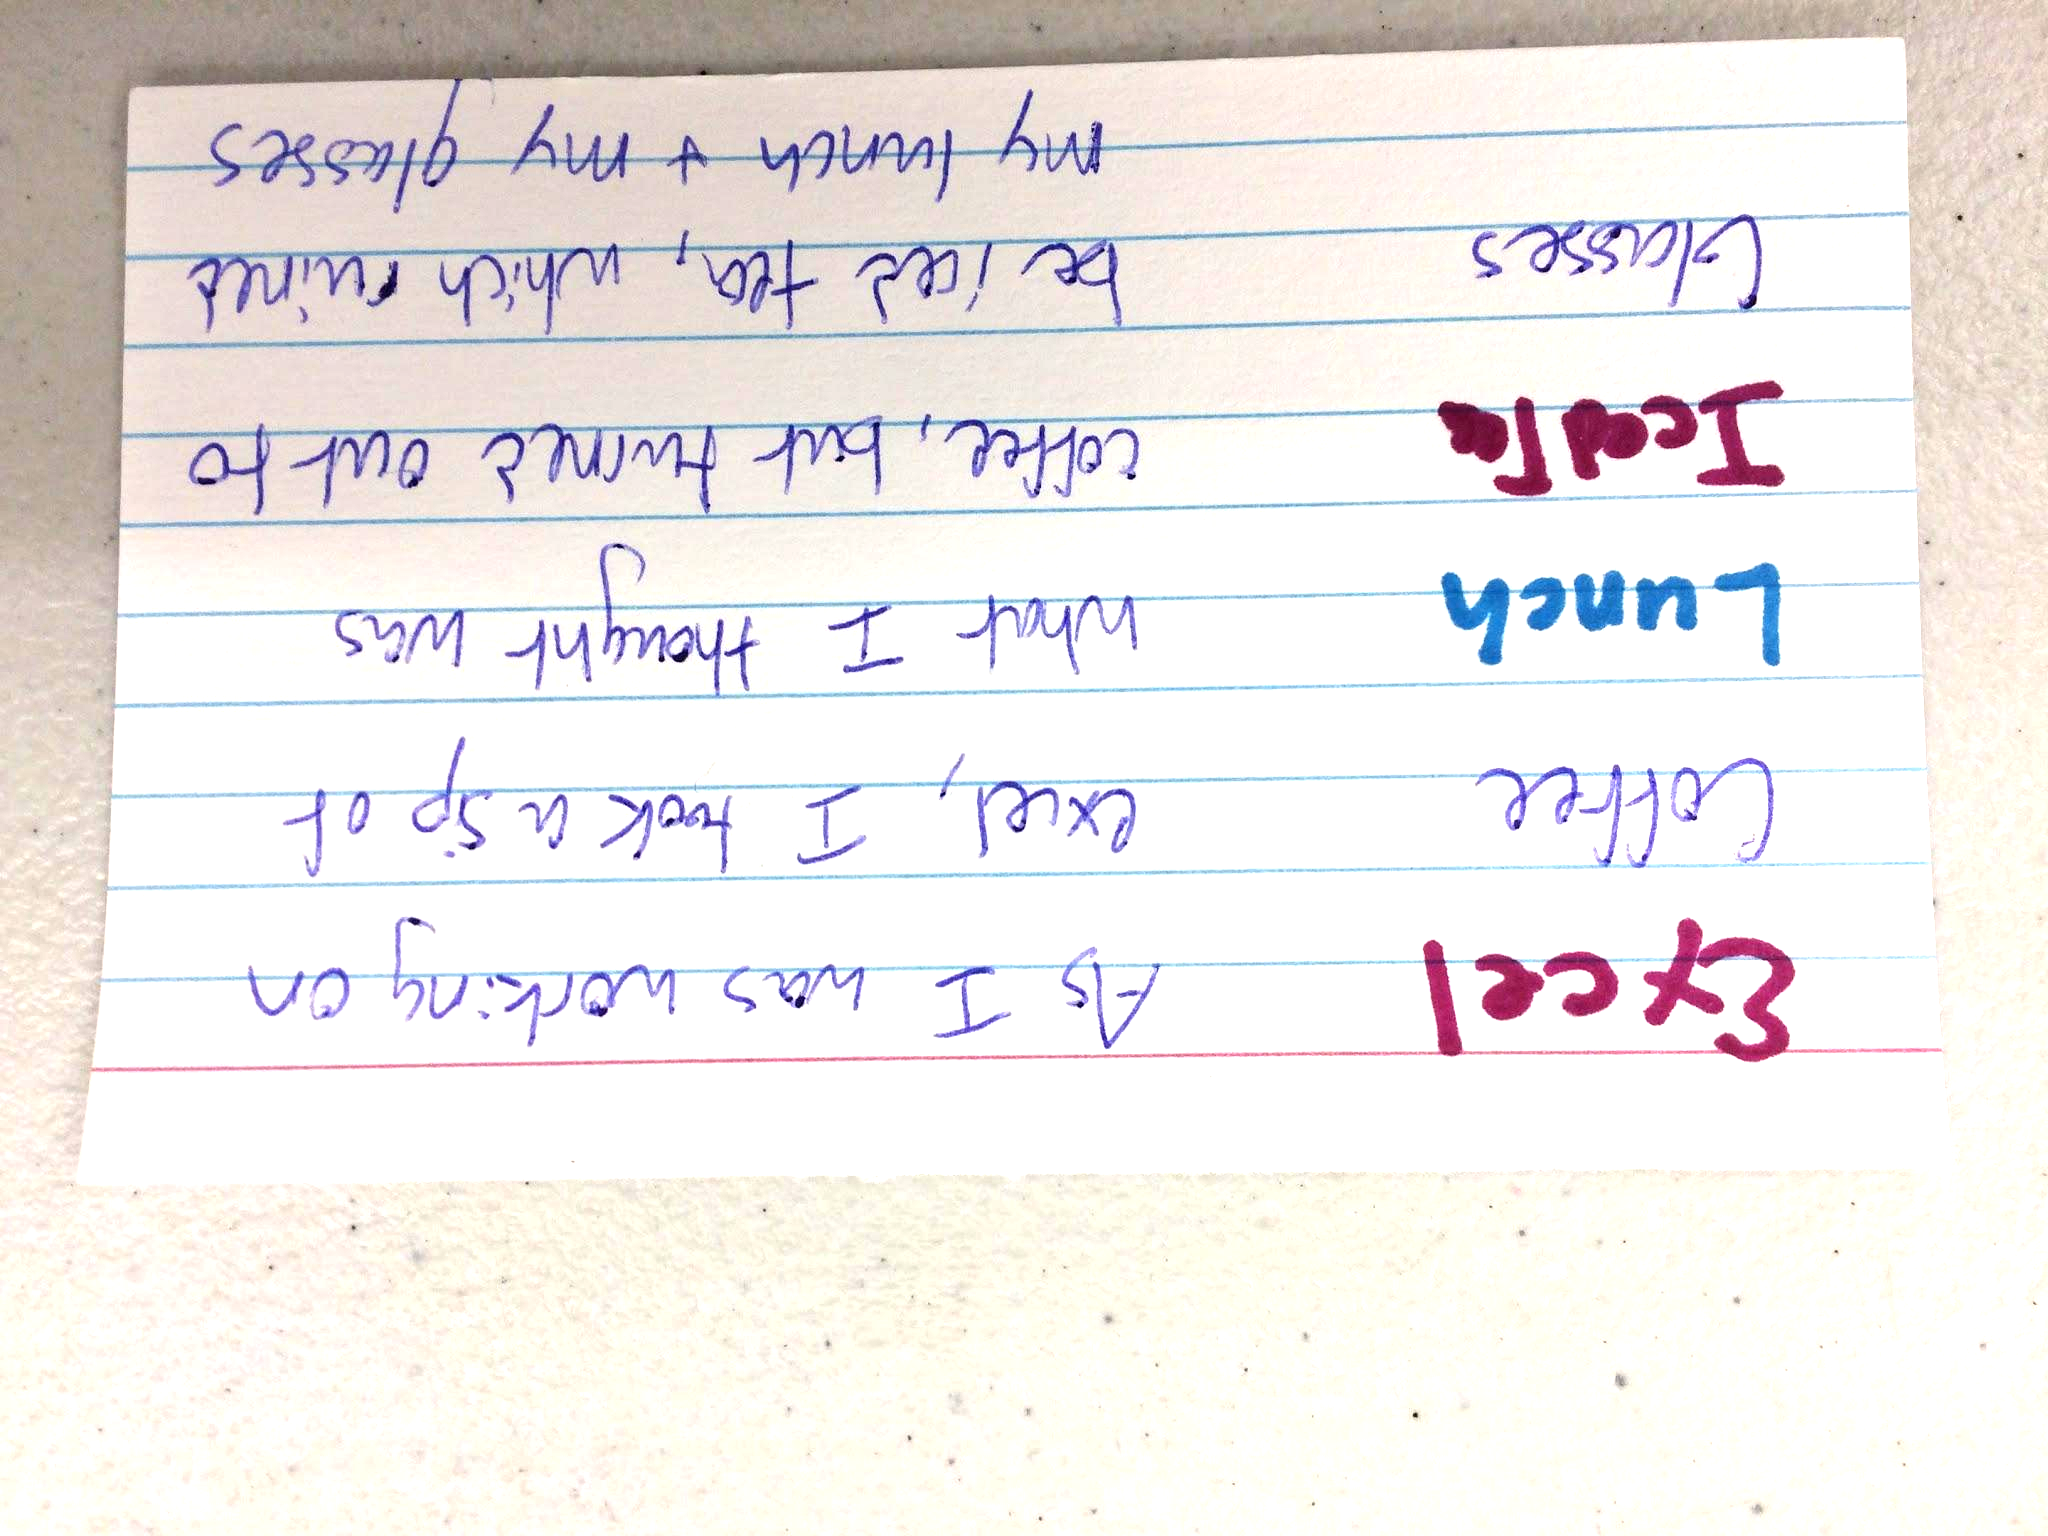 Excel
Coffee
Lunch
Iced Tea
Glasses
As I was working on
excel, I took a sip of
what I thought was
coffee, but turned out to
be iced tea, which ruined
my lunch + my glasses